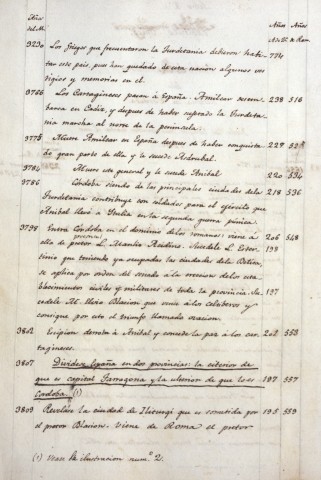 Años del M.
Años A. de J.C.
Años de Rom.
3230 Los Griegos que frecuentaron la Turdetania debieron habi- 774
tar este pais, pues han quedado de esta nacion algunos ves
tigios y memorias en el.
3766 Los Cartagineses pasan á España. Amilcar desem- 238 516
barca en Cadiz, y despues de haber ocupado la Turdeta-
nia marcha al norte de la peninsula.
3775 Muere Amilcar en España despues de haber conquista-
do gran parte de ella y le sucede Asdrubal.
3784 Muere este general y le sucede Anibal 220 534
3786 Cordoba siendo de las principales ciudades de la 218 536
Turdetania contribuye con soldados para el ejército que
Anibal llevó á Italia en la segunda guerra púnica.
3798 Entra Córdoba en el dominio de los romanos: viene á 206 548
ella de pretor L. Manlio Acidino. Sucedele L. Ester- 198
tinio que teniendo ya ocupadas las ciudades de la Bética,
se aplica por orden del senado á la ereccion de los esta
blecimientos civiles y militares de toda la provincia. Su- 197
cedele M. Elvio Blasion que vence á los Celtiberos y
consigue por esto el triunfo llamado ovacion.
3802 Escipion derrota á Anibal y concede la paz á los car- 202 552
tagineses.
3807 Dividese España en dos provincias: la citerior de
que es capital Tarragona y la ulterior de que lo es 197 557
Cordoba. (1)
3809 Revelase la ciudad de Iliturgi que es sometida por 195 559
el pretor Blasion. Viene de Roma el pretor
(1) Vease la ilustracion num.º 2.